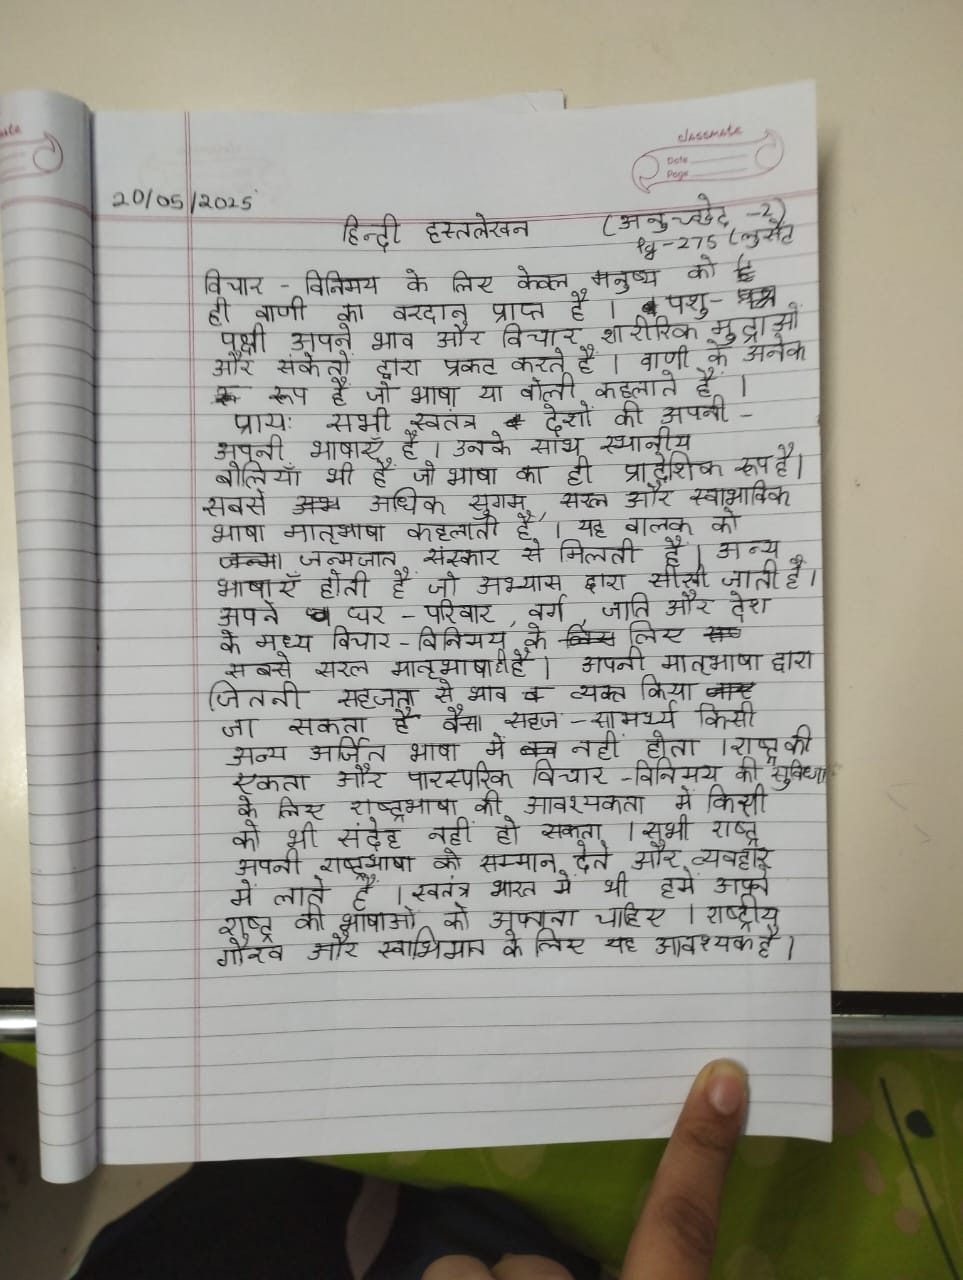 classmate
Date
Page
20/05/2025
हिन्दी हस्तलेखन (अनुच्छेद -2)
Pg-275 (लुसेंट
विचार - विनिमय के लिए केवल मनुष्य को
ही वाणी का वरदान प्राप्त है । पशु-
पक्षी अपने भाव और विचार शारीरिक मुद्राओं
और संकेतों द्वारा प्रकट करते हैं । वाणी के अनेक
रूप हैं जो भाषा या बोली कहलाते हैं ।
प्रायः सभी स्वतंत्र देशों की अपनी -
अपनी भाषाएँ है । उनके साथ स्थानीय
बोलियाँ भी हैं जो भाषा का ही प्रादेशिक रूप है।
सबसे अधिक सुगम, सरल और स्वाभाविक
भाषा मातृभाषा कहलाती है । यह बालक को
जन्मजात संस्कार से मिलती है । अन्य
भाषाएँ होती हैं जो अभ्यास द्वारा सीखी जाती हैं।
अपने घर - परिवार, वर्ग, जाति और देश
के मध्य विचार - विनिमय के लिए
सबसे सरल मातृभाषा ही है । अपनी मातृभाषा द्वारा
जितनी सहजता से भाव व्यक्त किया
जा सकता है वैसा सहज - सामर्थ्य किसी
अन्य अर्जित भाषा में नहीं होता । राष्ट्र की
एकता और पारस्परिक विचार - विनिमय की सुविधा
के लिए राष्ट्रभाषा की आवश्यकता में किसी
को भी संदेह नहीं हो सकता । सभी राष्ट्र
अपनी राष्ट्रभाषा को सम्मान देते और व्यवहार
में लाते हैं । स्वतंत्र भारत में भी हमें अपने
राष्ट्र की भाषाओं को अपनाना चाहिए । राष्ट्रीय
गौरव और स्वाभिमान के लिए यह आवश्यक है ।